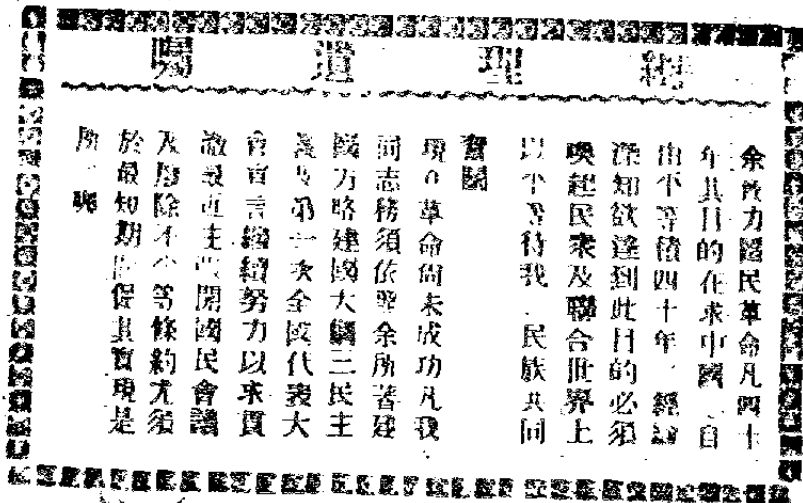 總理遺囑
余致力國民革命凡四十
年其目的在求中國自
由平等積四十年經驗
深知欲達到此目的必須
喚起民衆及聯合世界上
以平等待我民族共同
奮鬪
現在革命尚未成功凡我
同志務須依照余所著建
國方略建國大綱三民主
義及第一次全國代表大
會宣言繼續努力以求貫
澈最近主張開國民會議
及廢除不平等條約尤須
於最短期間促其實現是
所囑